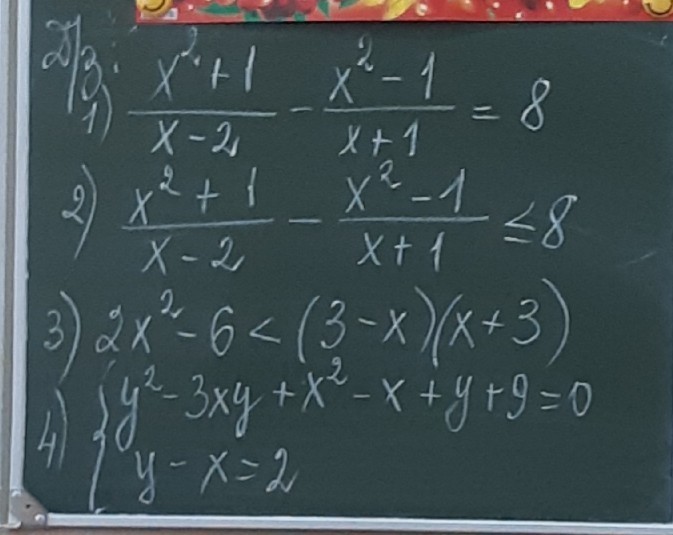 Д/з:
1) (x²+1)/(x-2) - (x²-1)/(x+1) = 8
2) (x²+1)/(x-2) - (x²-1)/(x+1) ≤ 8
3) 2x²-6 < (3-x)(x+3)
4) { y²-3xy+x²-x+y+9=0
y-x=2